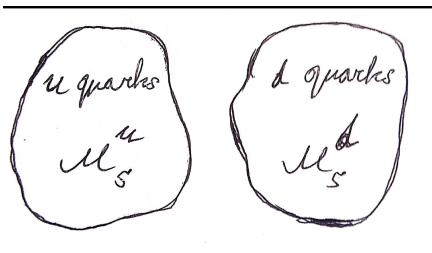 u quarks
μ₅ᵘ
d quarks
μ₅ᵈ